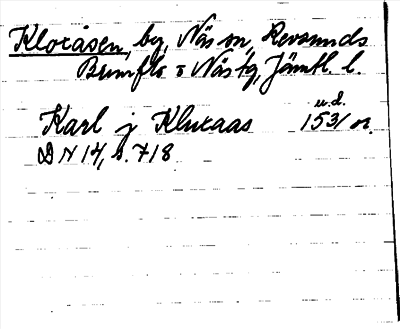 Klocåsen, by, Näs sn, Revsunds
Brunflo o Näs tg, Jämtl. l.
u.d.
Karl j Klucaas 1531 or.
DN 14, s. 718